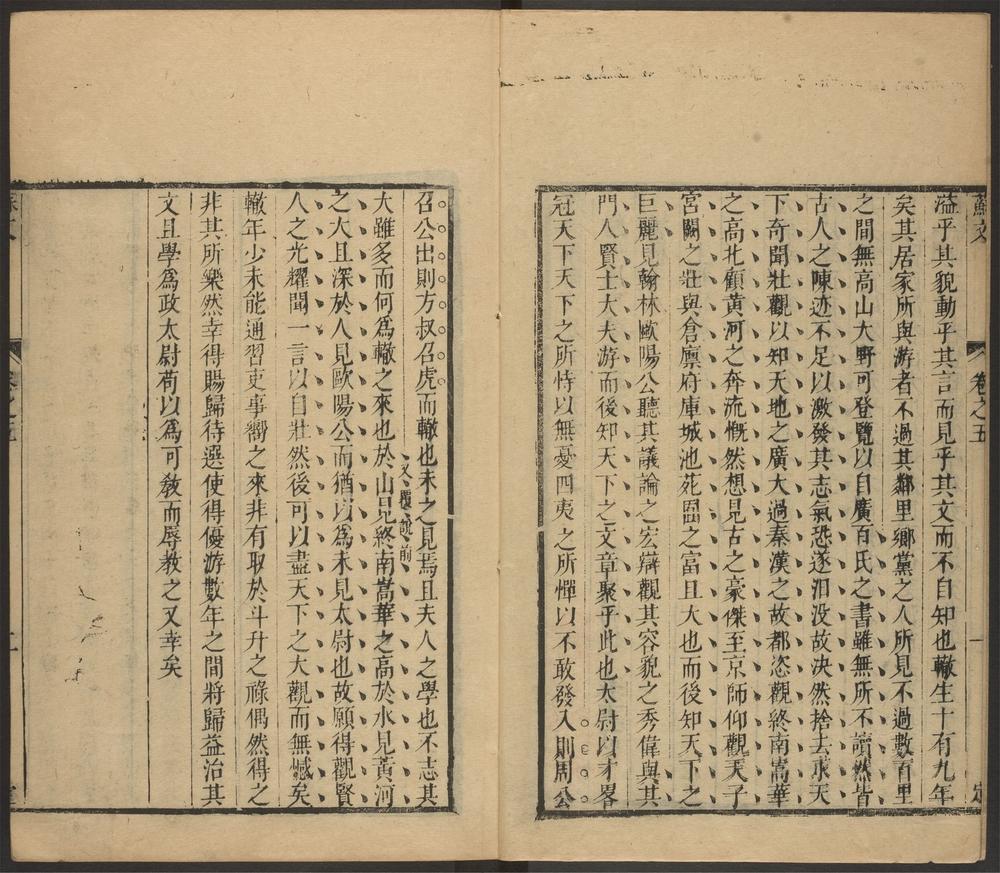 蘇文
卷之五
一
溢乎其貌動乎其言而見乎其文而不自知也轍生十有九年
矣其居家所與游者不過其鄰里鄉黨之人所見不過數百里
之間無高山大野可登覽以自廣百氏之書雖無所不讀然皆
古人之陳迹不足以激發其志氣恐遂汩没故决然捨去求天
下奇聞壯觀以知天地之廣大過秦漢之故都恣觀終南嵩華
之高北顧黄河之奔流慨然想見古之豪傑至京師仰觀天子
宮闕之壯與倉廪府庫城池苑囿之富且大也而後知天下之
巨麗見翰林歐陽公聽其議論之宏辯觀其容貌之秀偉與其
門人賢士大夫游而後知天下之文章聚乎此也太尉以才畧
冠天下天下之所恃以無憂四夷之所憚以不敢發入則周公
召公出則方叔召虎而轍也未之見焉且夫人之學也不志其
又獲說前
大雖多而何爲轍之來也於山見終南嵩華之高於水見黄河
之大且深於人見歐陽公而猶以爲未見太尉也故願得觀賢
人之光耀聞一言以自壯然後可以盡天下之大觀而無憾矣
轍年少未能通習吏事嚮之來非有取於斗升之祿偶然得之
非其所樂然幸得賜歸待選使得優游數年之間將歸益治其
文且學爲政太尉苟以爲可教而辱教之又幸矣